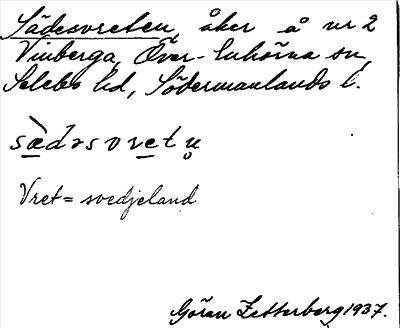 Sädesvreten, åker å nr 2
Vinberga, Över-Enhörna sn,
Selebo hd, Södermanlands l.
sæ̀dəsvretn̥
Vret = svedjeland
Göran Zetterberg 1937.